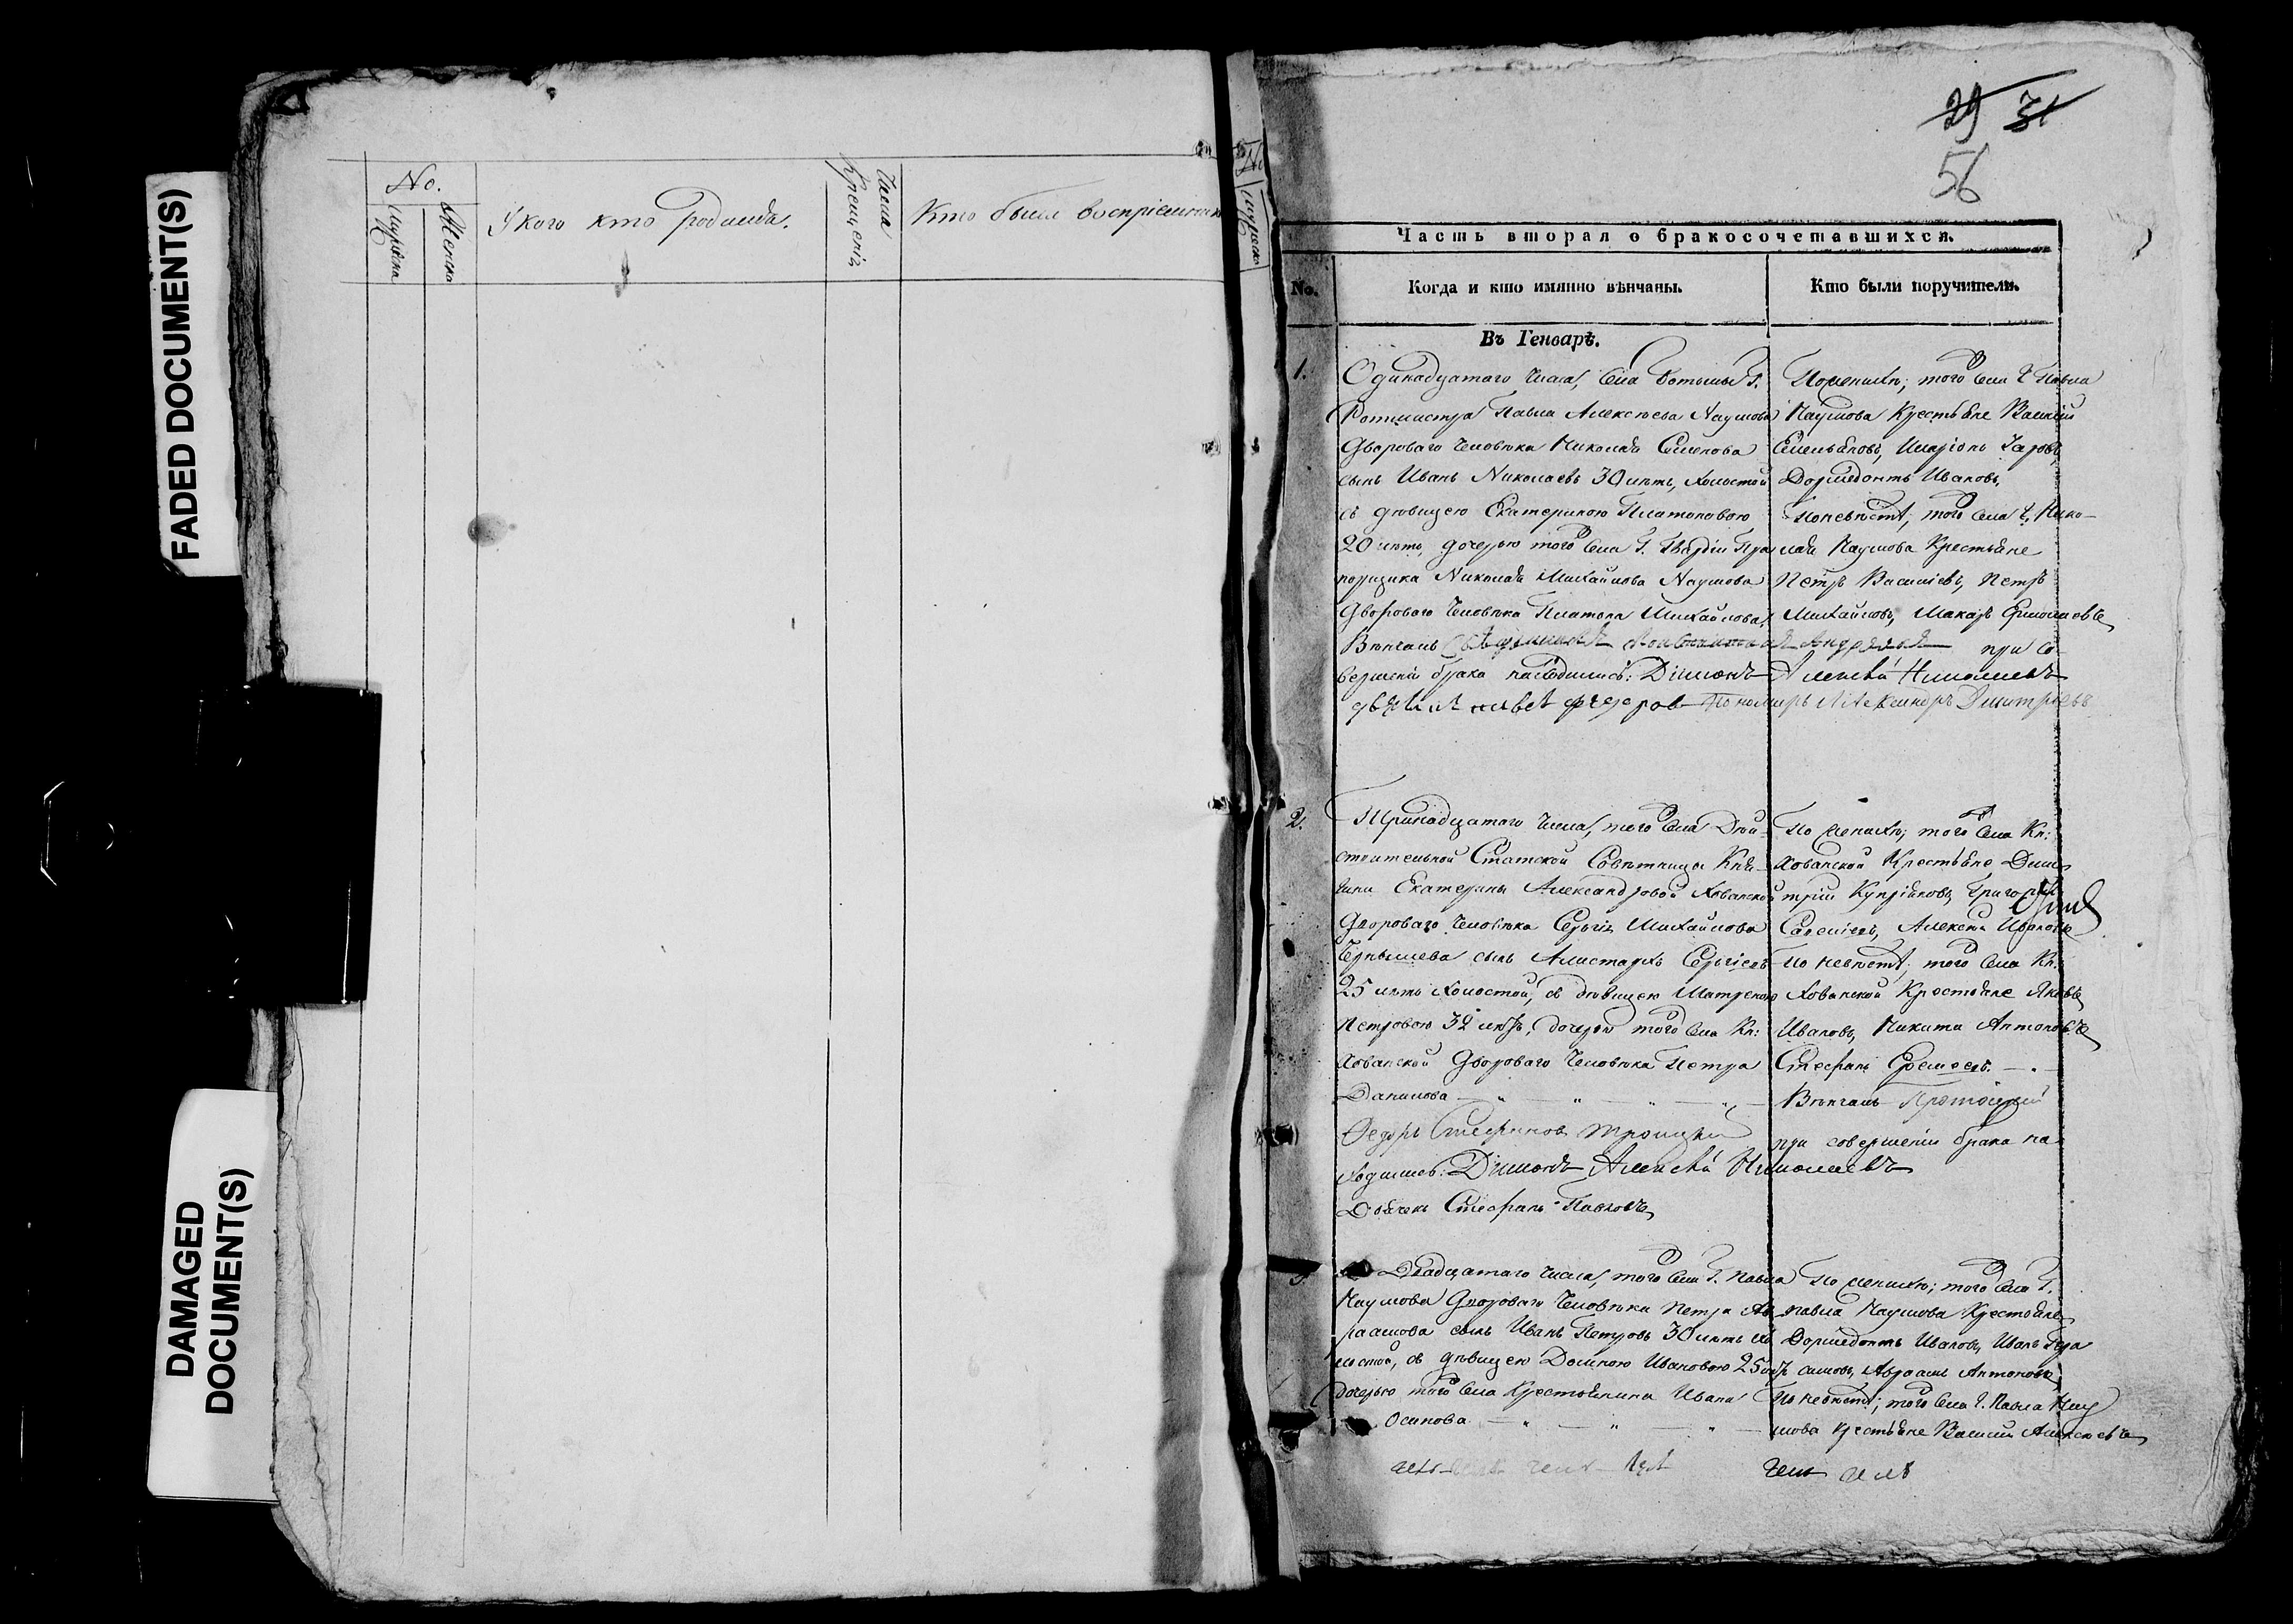 FADED DOCUMENT(S)
DAMAGED
DOCUMENT(S)
No.
Мужеска
Женска
У кого кто родился.
Числа
Крещенія
Кто были воспріемники
29 31
56
Часть вторая о бракосочетавшихся.
No.
Когда и кто имянно вѣнчаны.
Кто были поручители.
Въ Генварѣ.
1.
Одинадцатаго числа, села Г.
Ротмистра Павла Алексѣева Наумова
Двороваго человѣка Николая Семенова
сынъ Иванъ Николаевъ 30 лѣтъ, холостой
съ дѣвицею Екатериною Платоновою
20 лѣтъ, дочерью того села Г. Гвардіи Пра
порщика Николая Михайлова Наумова
Двороваго человѣка Платона Михайлова.
Вѣнчалъ при со
вершеніи брака находились: Дияконъ Алексѣй Николаевъ
Федоров Пономарь Александръ Дмитріевъ
По женихѣ; того села Г. Павла
Наумова Крестьяне Василій
Емельяновъ, Иларіонъ
Дормедонтъ Ивановъ,
По невѣстѣ; того села Г. Нико-
лая Наумова Крестьяне
Петръ Василіевъ, Петръ
Михайловъ, Макаръ Ермолаевъ
2.
Тринадцатаго числа, того села Дѣй-
ствительной Статской Совѣтницы Кня-
гини Екатерины Александровой Хованской
Двороваго человѣка Сергія Михайлова
Чернышева сынъ Алистархъ Сергіевъ
25 лѣтъ холостой, съ дѣвицею Матреною
Петровою 32 лѣтъ, дочерью того села Кн:
Хованской Двороваго человѣка Петра
Данилова
Федоръ Стефановъ Троицкій
ходились: Дияконъ Алексѣй Николаевъ
Дьячекъ Стефанъ Павловъ
По женихѣ; того села Кн:
Хованской Крестьяне Дими
трій Купріяновъ, Григорій
Савеліевъ, Алексѣй Ивановъ
По невѣстѣ; того села Кн:
Хованской Крестьяне Яковъ
Ивановъ, Никита Антоновъ
Стефанъ Еремеевъ.
Вѣнчалъ Протоіерей
при совершеніи брака на
3.
Двадцатаго числа, того села Г. Павла
Наумова Двороваго человѣка Петра Ав
раамова сынъ Иванъ Петровъ 30 лѣтъ хо
лостой, съ дѣвицею Домною Ивановою 25 лѣтъ
дочерью того села Крестьянина Ивана
Осипова
По женихѣ; того села Г.
Павла Наумова Крестьяне
Дормедонтъ Ивановъ, Иванъ Гера
симовъ, Авраамъ Антоновъ
По невѣстѣ; того села Г. Павла Нау
мова Крестьяне Василій Алексѣевъ